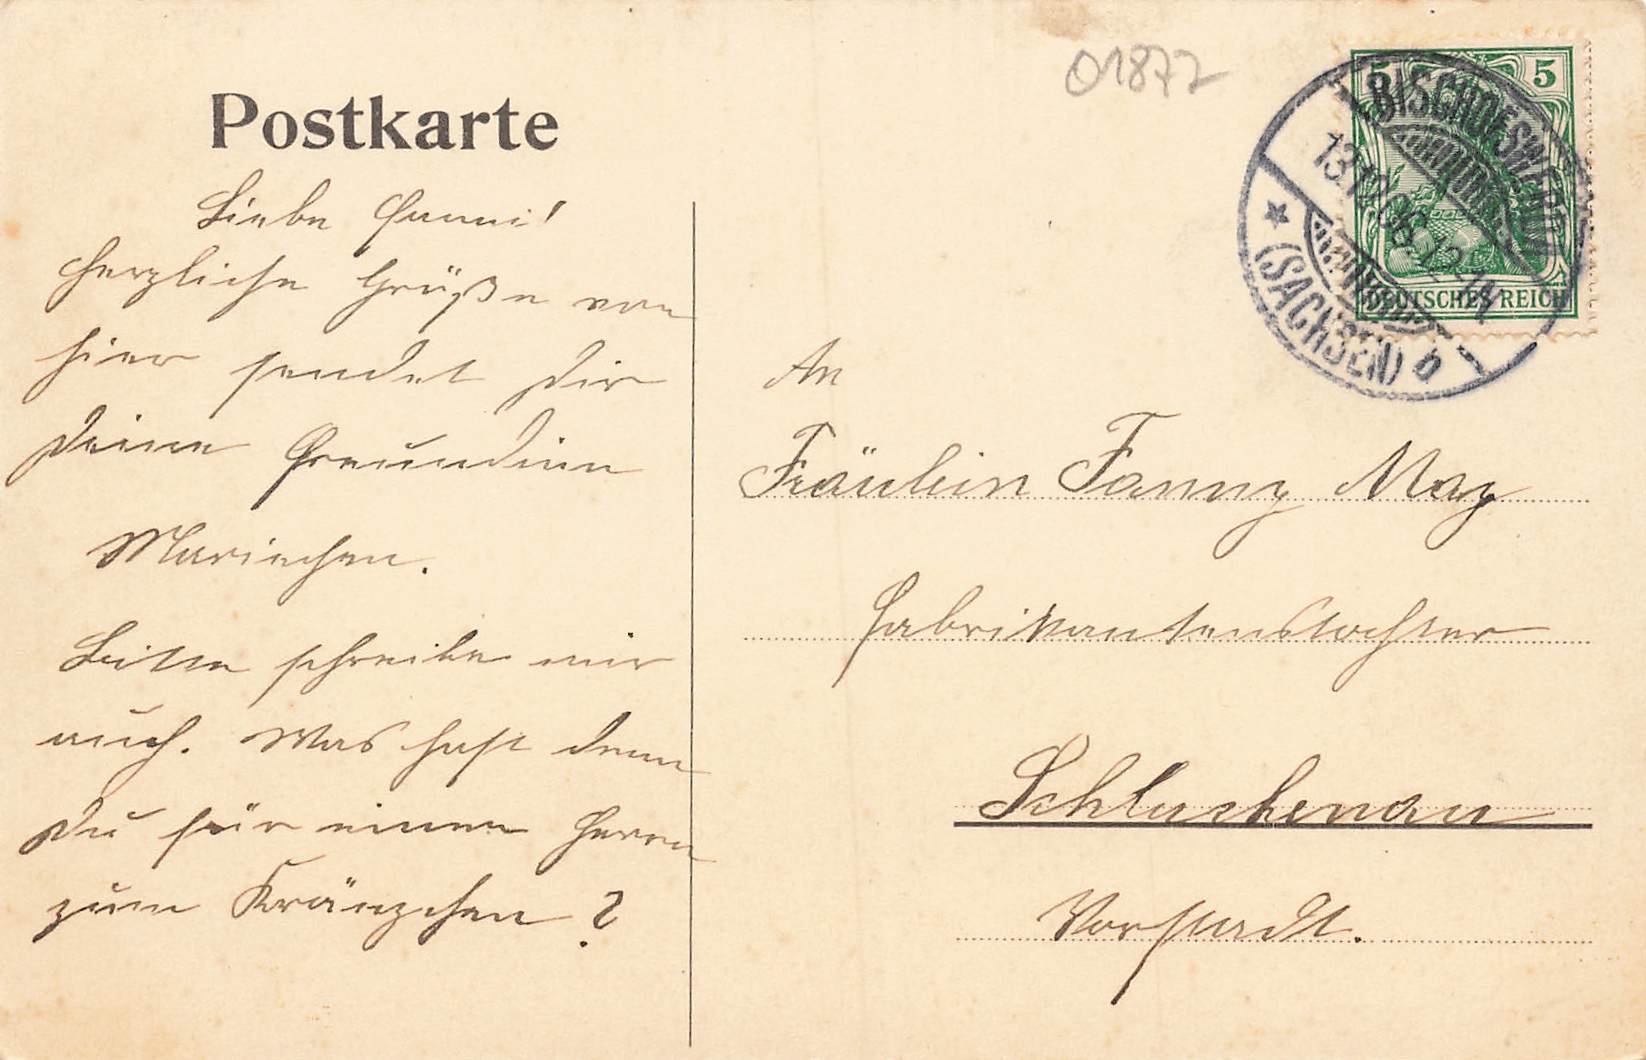 Postkarte
Liebe Fanni!
Herzliche Grüße von
hier sendet Dir
Deine Freundinn
Mariechen.
Bitte schreibe mir
auch. Was hast denn
Du für einen Herrn
zum Kränzchen?
01877
5 5
DEUTSCHES REICH
BISCHOFSWERDA
13.12.06. 12-1N.
(SACHSEN) b
An
Fräulein Fanny May
Fabrikantenstochter
Schluckenau
Vorstadt.